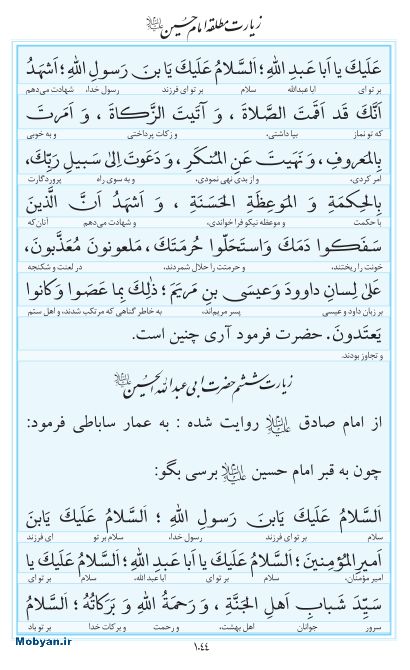 زیارت مطلقه امام حسین علیه‌السلام
عَلَيكَ يا اَبا عَبدِ اللهِ؛ اَلسَّلامُ عَلَيكَ يَا بنَ رَسولِ اللهِ؛ اَشهَدُ
بر تو ای ابا عبدالله سلام بر تو ای فرزند رسول خدا، شهادت می‌دهم
اَنَّكَ قَد اَقَمتَ الصَّلاةَ ، وَ آتَيتَ الزَّكاةَ ، وَ اَمَرتَ
که تو نماز بپا داشتی، و زکات پرداختی و به خوبی
بِالمَعروفِ، وَ نَهَيتَ عَنِ المُنكَرِ، وَ دَعَوتَ اِلىٰ سَبيلِ رَبِّكَ،
امر کردی، و از بدی نهی نمودی، و به سوی راه پروردگارت
بِالحِكمَةِ وَ المَوعِظَةِ الحَسَنَةِ ، وَ اَشهَدُ اَنَّ الَّذينَ
با حکمت و موعظه نیکو فرا خواندی، و شهادت می‌دهم آنان‌که
سَفَكوا دَمَكَ وَاستَحَلّوا حُرمَتَكَ، مَلعونونَ مُعَذَّبونَ،
خونت را ریختند، و حرمتت را حلال شمردند، در لعنت و شکنجه
عَلىٰ لِسانِ داوودَ وَعيسَى بنِ مَريَمَ؛ ذٰلِكَ بِما عَصَوا وَكانوا
بر زبان داود و عیسی پسر مریم‌اند، به خاطر گناهی که مرتکب شدند، و اهل ستم
يَعتَدونَ. حضرت فرمود آری چنین است.
و تجاوز بودند.
زیارت ششم حضرت ابی عبد الله الحسین علیه‌السلام
از امام صادق علیه‌السلام روایت شده : به عمار ساباطی فرمود:
چون به قبر امام حسین علیه‌السلام برسی بگو:
اَلسَّلامُ عَلَيكَ يَابنَ رَسولِ اللهِ ؛ اَلسَّلامُ عَلَيكَ يَابنَ
سلام بر تو ای فرزند رسول خدا، سلام بر تو ای فرزند
اَميرِالمُؤمِنينَ؛ اَلسَّلامُ عَلَيكَ يا اَبا عَبدِ اللهِ؛ اَلسَّلامُ عَلَيكَ يا
امیر مؤمنان، سلام بر تو ای ابا عبدالله، سلام بر تو ای
سَيِّدَ شَبابِ اَهلِ الجَنَّةِ ، وَ رَحمَةُ اللهِ وَ بَرَكاتُهُ؛ اَلسَّلامُ
سرور جوانان اهل بهشت، و رحمت و برکات خدا بر تو باد
۱۰۴۴
Mobyan.ir